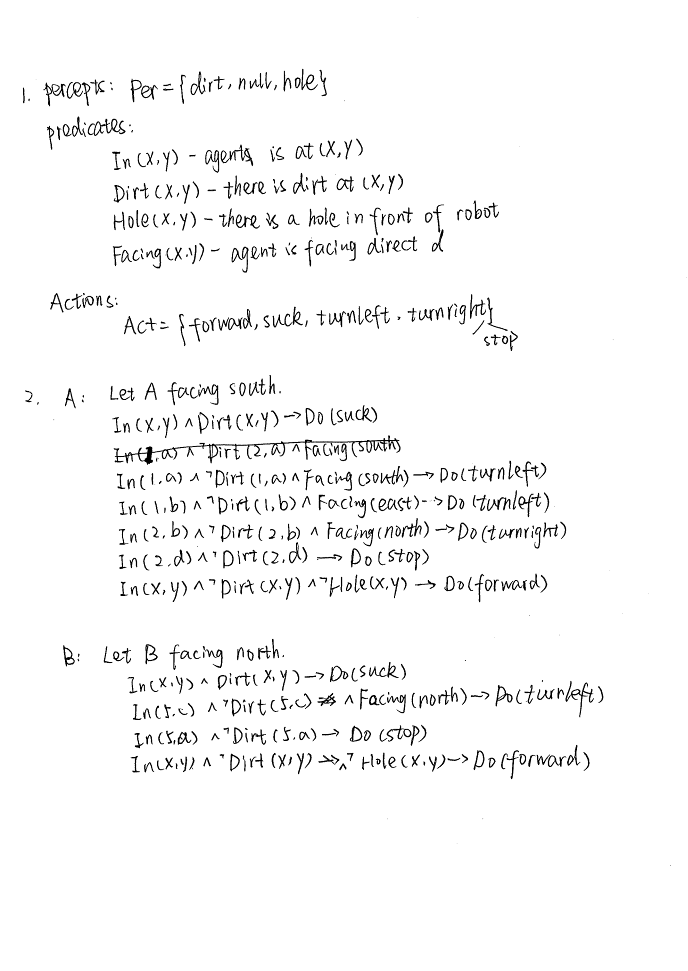 1. percepts: Per = {dirt, null, hole}
predicates:
In(X,Y) - agents is at (X,Y)
Dirt(X,Y) - there is dirt at (X,Y)
Hole(X,Y) - there is a hole in front of robot
Facing(X.Y) - agent is facing direct d
Actions:
Act = {forward, suck, turnleft, turnright}
stop
2. A: Let A facing south.
In(X,Y) ∧ Dirt(X,Y) → Do(suck)
In(1,a) ∧ ¬Dirt(2,a) ∧ Facing(south)
In(1,a) ∧ ¬Dirt(1,a) ∧ Facing(south) → Do(turnleft)
In(1,b) ∧ ¬Dirt(1,b) ∧ Facing(east) → Do(turnleft)
In(2,b) ∧ ¬Dirt(2,b) ∧ Facing(north) → Do(turnright)
In(2.d) ∧ ¬Dirt(2,d) → Do(stop)
In(X,Y) ∧ ¬Dirt(X,Y) ∧ ¬Hole(X,Y) → Do(forward)
B: Let B facing north.
In(X,Y) ∧ Dirt(X,Y) → Do(suck)
In(5,c) ∧ ¬Dirt(5,c) ∧ Facing(north) → Do(turnleft)
In(5,a) ∧ ¬Dirt(5.a) → Do(stop)
In(X,Y) ∧ ¬Dirt(X,Y) ∧ ¬Hole(X,Y) → Do(forward)